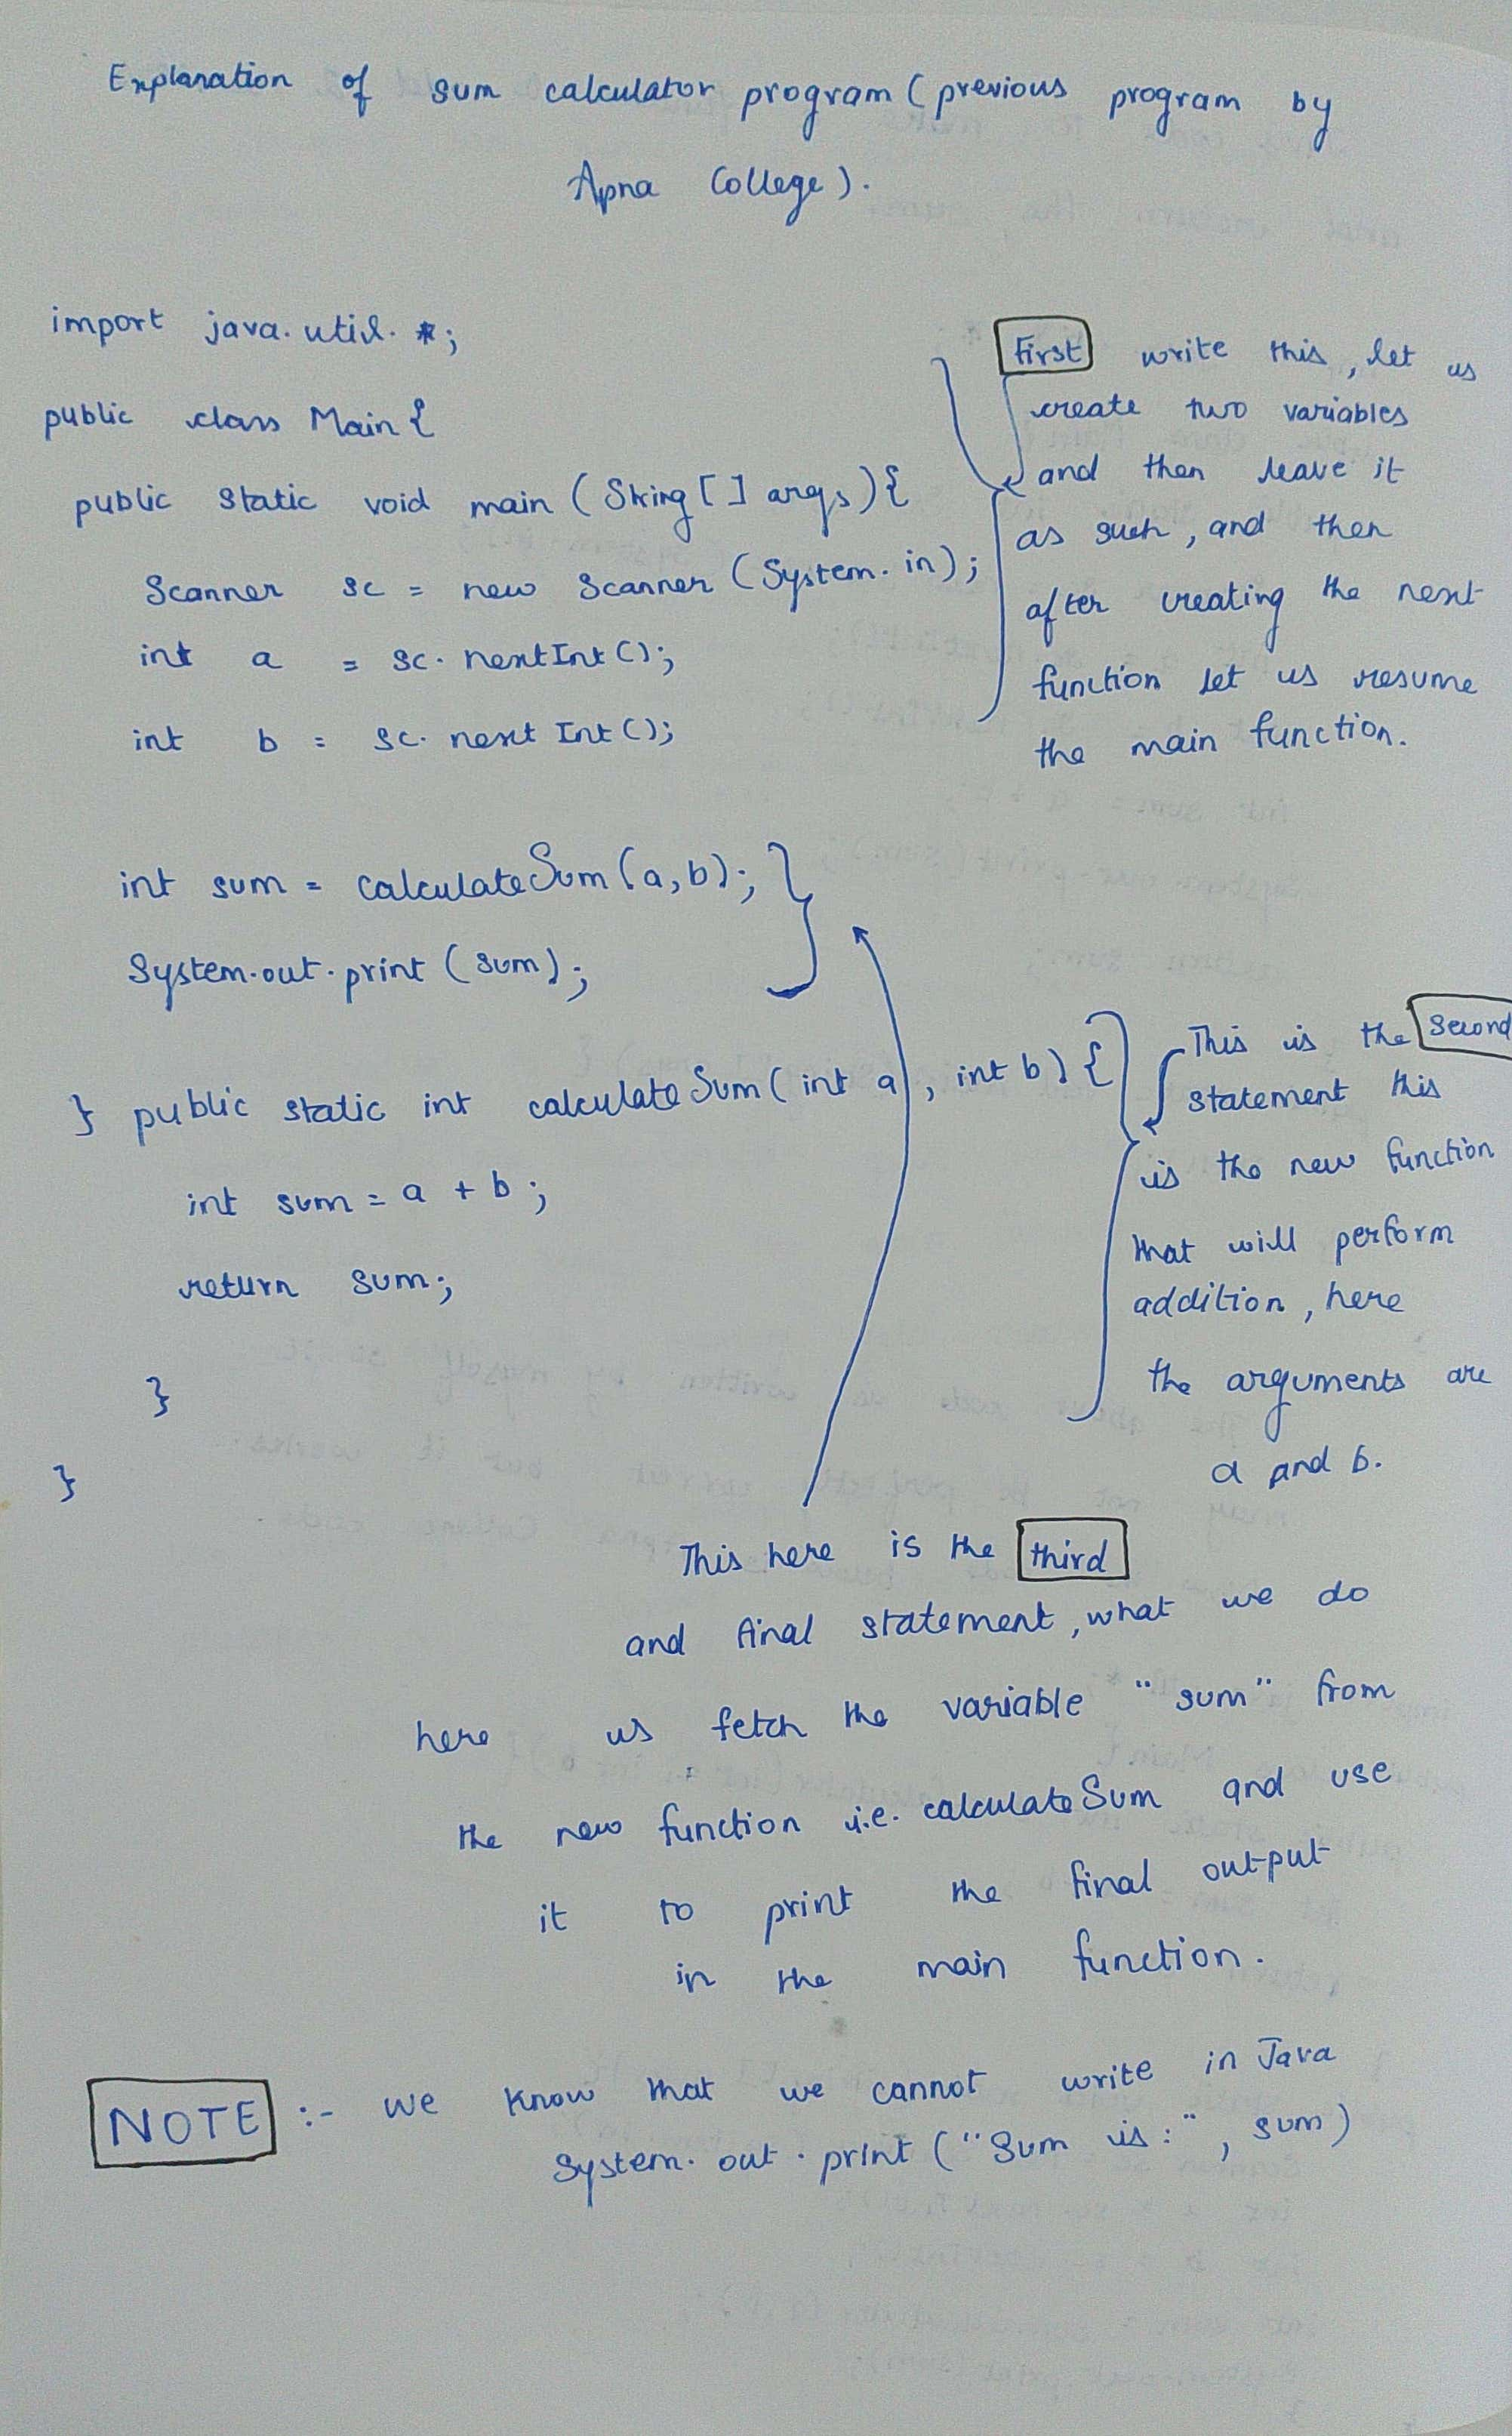 Explanation of sum calculator program (previous program by
Apna College).
import java.util.*;
public class Main {
public static void main (String [] args) {
Scanner sc = new Scanner (System.in);
int a = sc.nextInt();
int b = sc.next Int();
First write this, let us
create two variables
and then leave it
as such, and then
after creating the next
function let us resume
the main function.
int sum = calculateSum (a,b);
System.out.print (sum);
} public static int calculateSum (int a, int b) {
int sum = a + b;
return sum;
}
}
This is the second
statement this
is the new function
that will perform
addition, here
the arguments are
a and b.
This here is the third
and final statement, what we do
here us fetch the variable "sum" from
the new function i.e. calculateSum and use
it to print the final output
in the main function.
NOTE :- we know that we cannot write in Java
System.out.print ("Sum is:", sum)